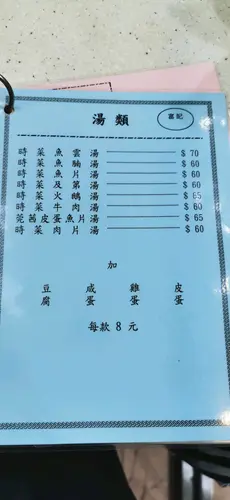 湯類
富記
時菜魚雲湯 $70
時菜魚腩湯 $60
時菜魚片湯 $60
時菜及第湯 $60
時菜火鴨湯 $65
時菜牛肉湯 $60
芫茜皮蛋魚片湯 $65
時菜肉片湯 $60
加
豆腐 咸蛋 雞蛋 皮蛋
每款 8 元